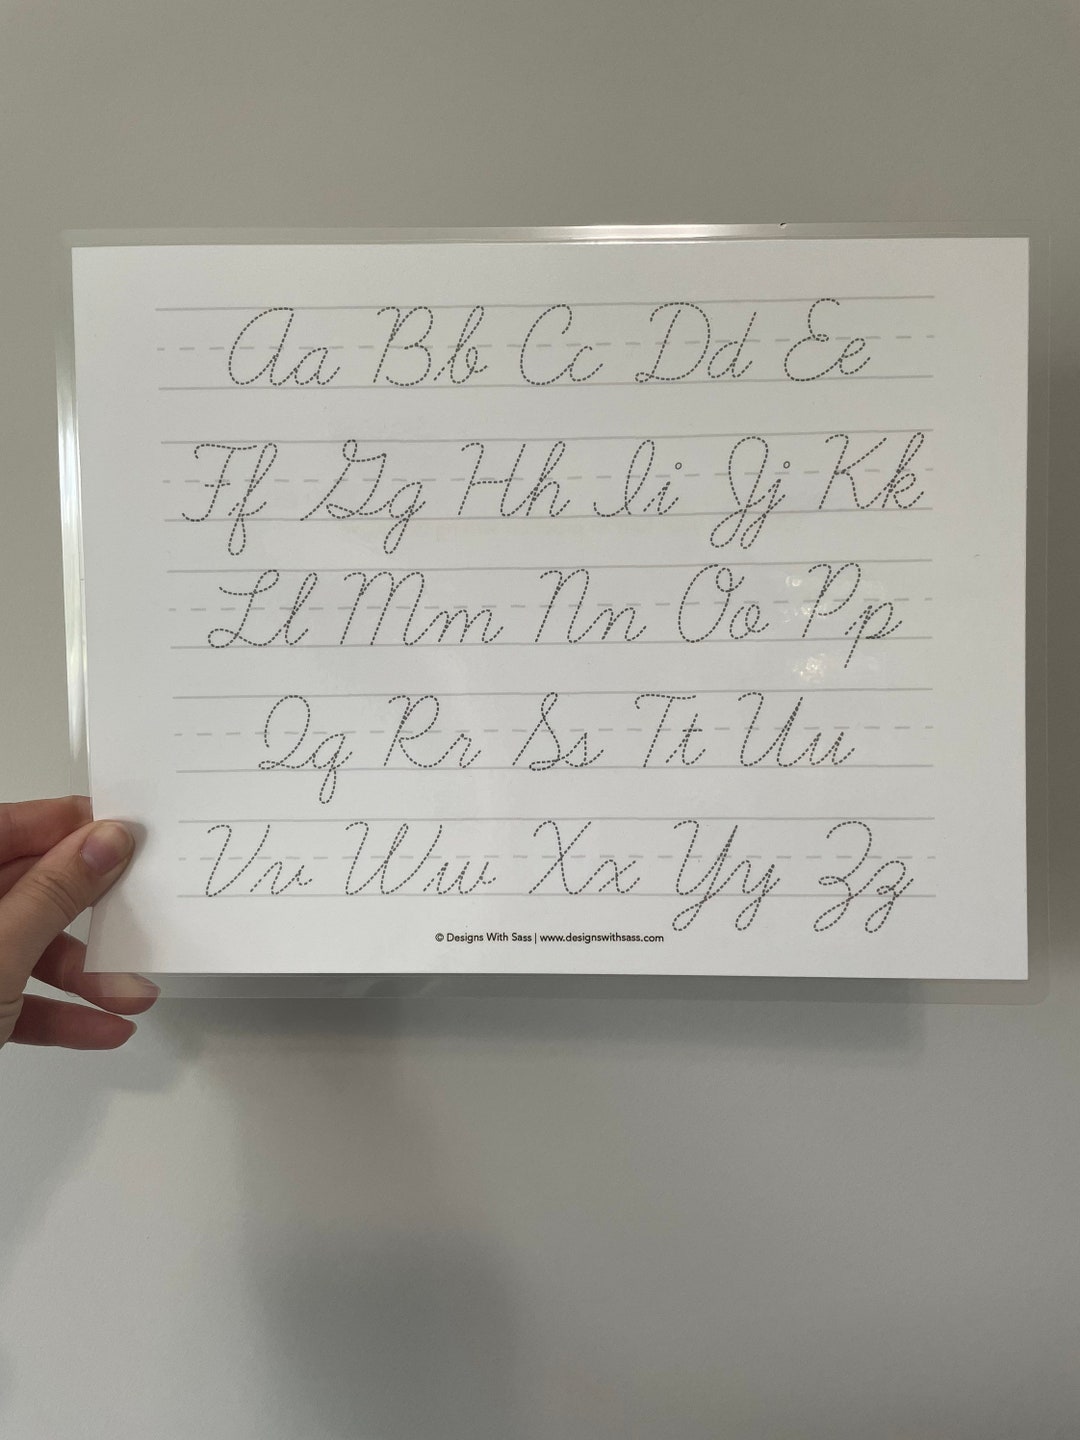 Aa Bb Cc Dd Ee
Ff Gg Hh Ii Jj Kk
Ll Mm Nn Oo Pp
Qq Rr Ss Tt Uu
Vv Ww Xx Yy Zz
© Designs With Sass | www.designswithsass.com